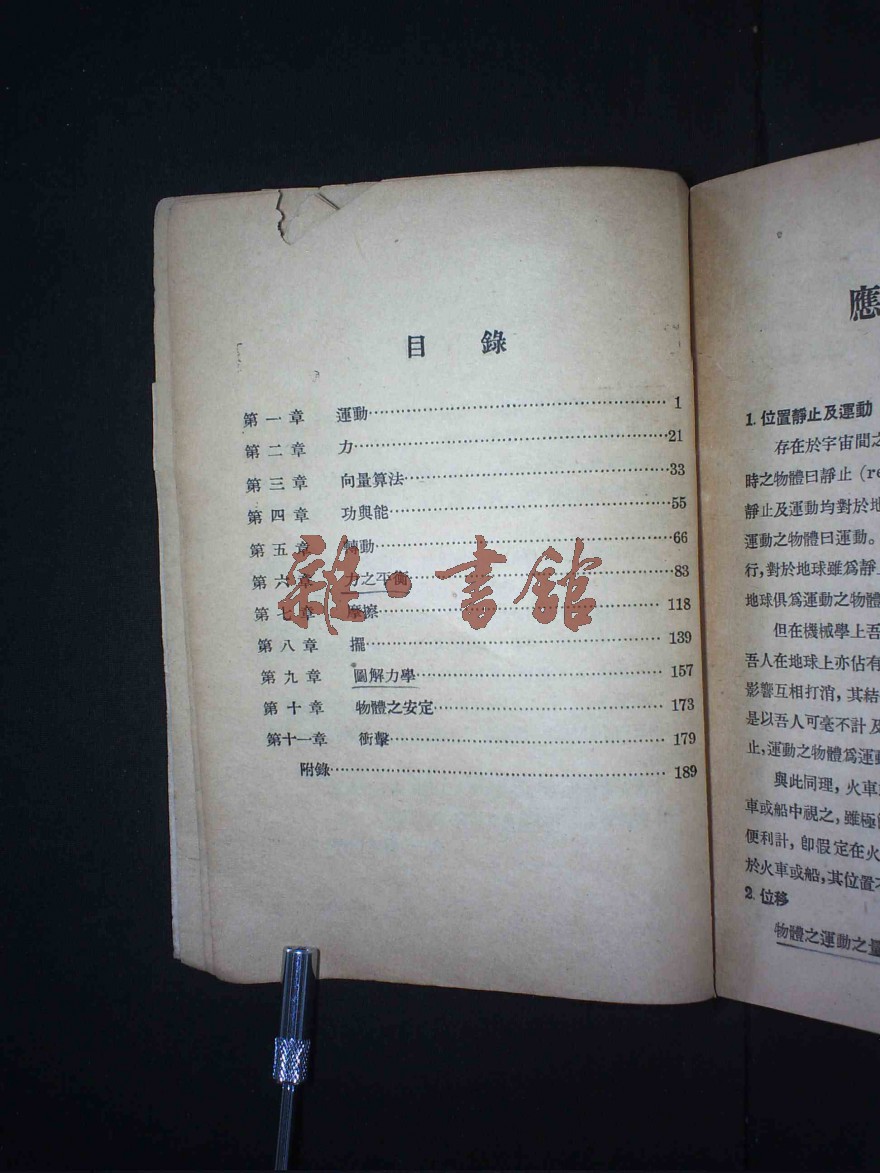 目錄
第一章 運動 1
第二章 力 21
第三章 向量算法 33
第四章 功與能 55
第五章 轉動 66
第六章 力之平衡 83
第七章 摩擦 118
第八章 擺 139
第九章 圖解力學 157
第十章 物體之安定 173
第十一章 衝擊 179
附錄 189
雜·書館
應
1. 位置靜止及運動
存在於宇宙間之
時之物體曰靜止 (re
靜止及運動均對於地
運動之物體曰運動。
行,對於地球雖爲靜止
地球俱爲運動之物體
但在機械學上吾
吾人在地球上亦佔有
影響互相打消,其結
是以吾人可毫不計及
止,運動之物體爲運動
與此同理,火車
車或船中視之,雖極
便利計,卽假定在火
於火車或船,其位置不
2. 位移
物體之運動之量